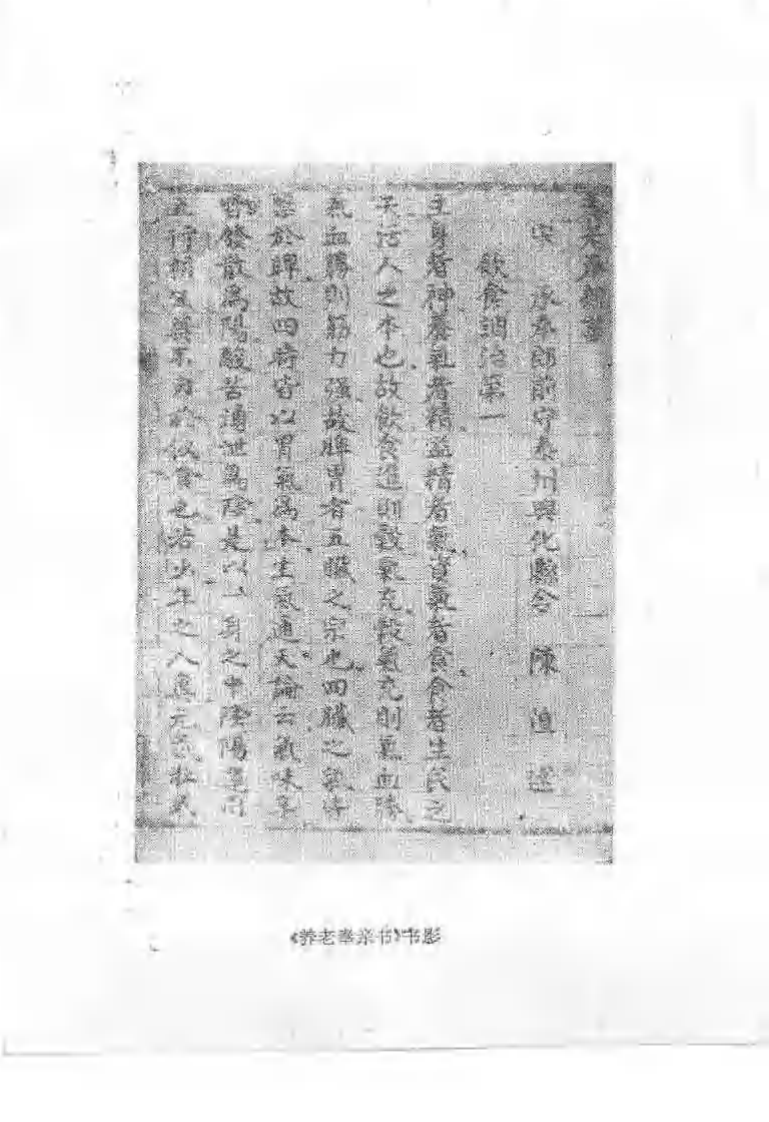 養老奉親書
宋 承奉郎前守泰州興化縣令 陳 直 選
飲食調治第一
主身者神養氣者精益精者氣資氣者食食者生民之
天活人之本也故飲食進則穀氣充穀氣充則氣血勝
氣血勝則筋力强故脾胃者五臟之宗也四臟之氣皆
稟於脾故四時皆以胃氣爲本生氣通天論云氣味辛
甘發散爲陽酸苦涌泄爲陰是以一身之中陰陽運用
五行相生莫不由於飲食也若少年之人眞元氣壯或
《养老奉亲书》书影